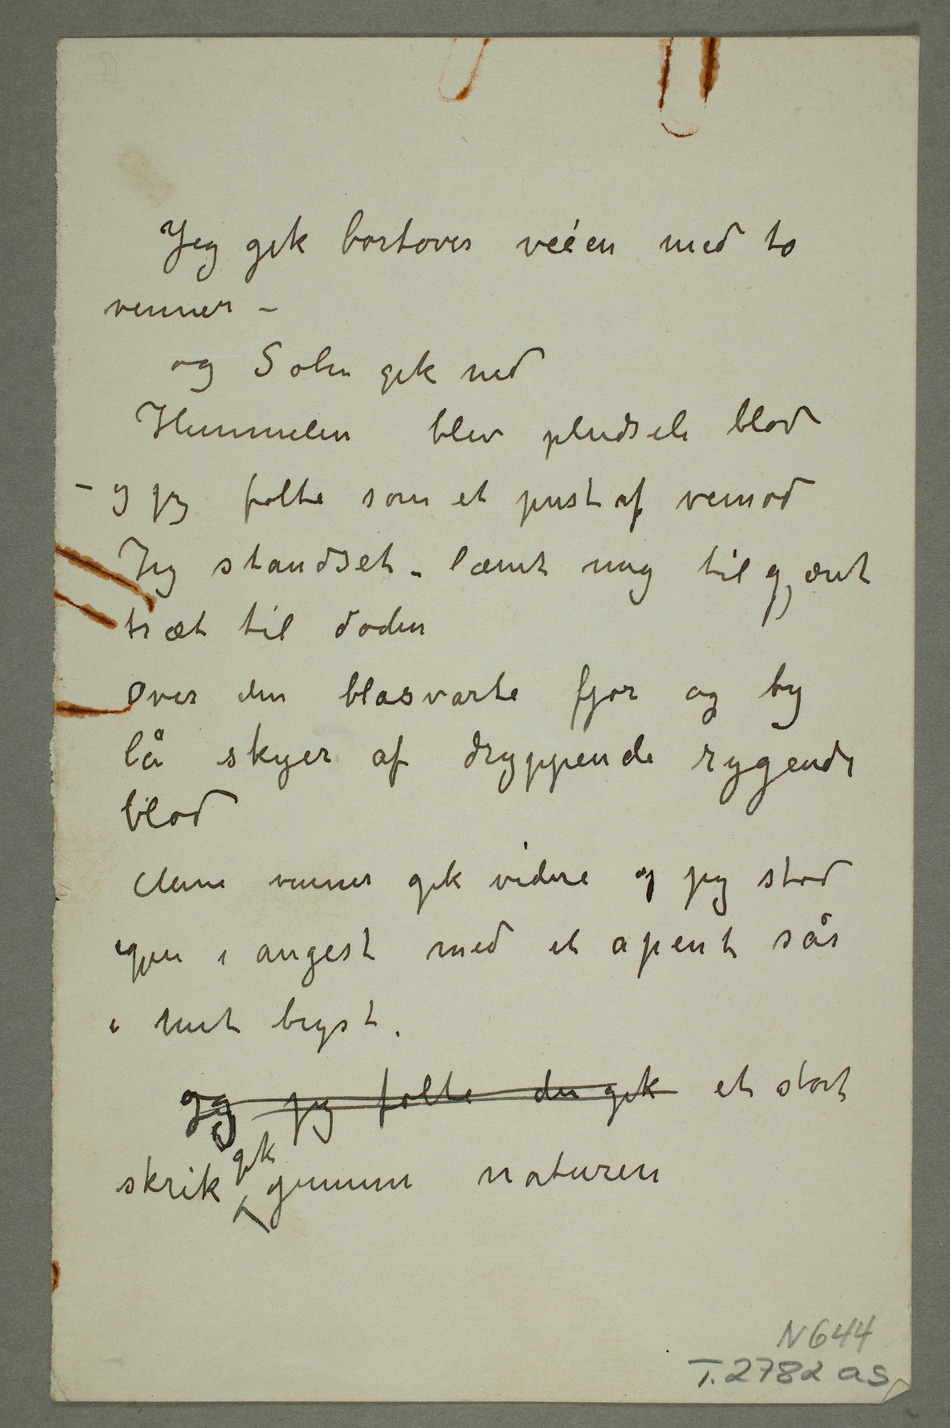 Jeg gik bortover veíen med to
venner –
og Solen gik ned
Himmelen blev pludseli blod
– og jeg følte som et pust af vemod
Jeg standset – lænet mig til gjæret
træt til døden
Over den blåsvarte fjor og by
lå skyer af dryppende rygende
blod
Mine venner gik videre og jeg stod
igjen i angest med et åpent sår
i mit bryst.
og jeg følte der gik et stort
skrik gik gjennem naturen
N644
T.2782 as